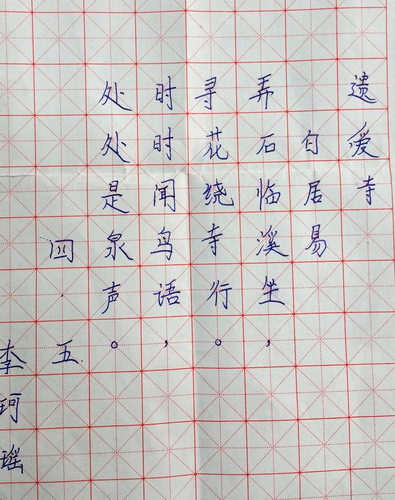 遗爱寺
白居易
弄石临溪坐，
寻花绕寺行。
时时闻鸟语，
处处是泉声。
四.五
李珂瑶